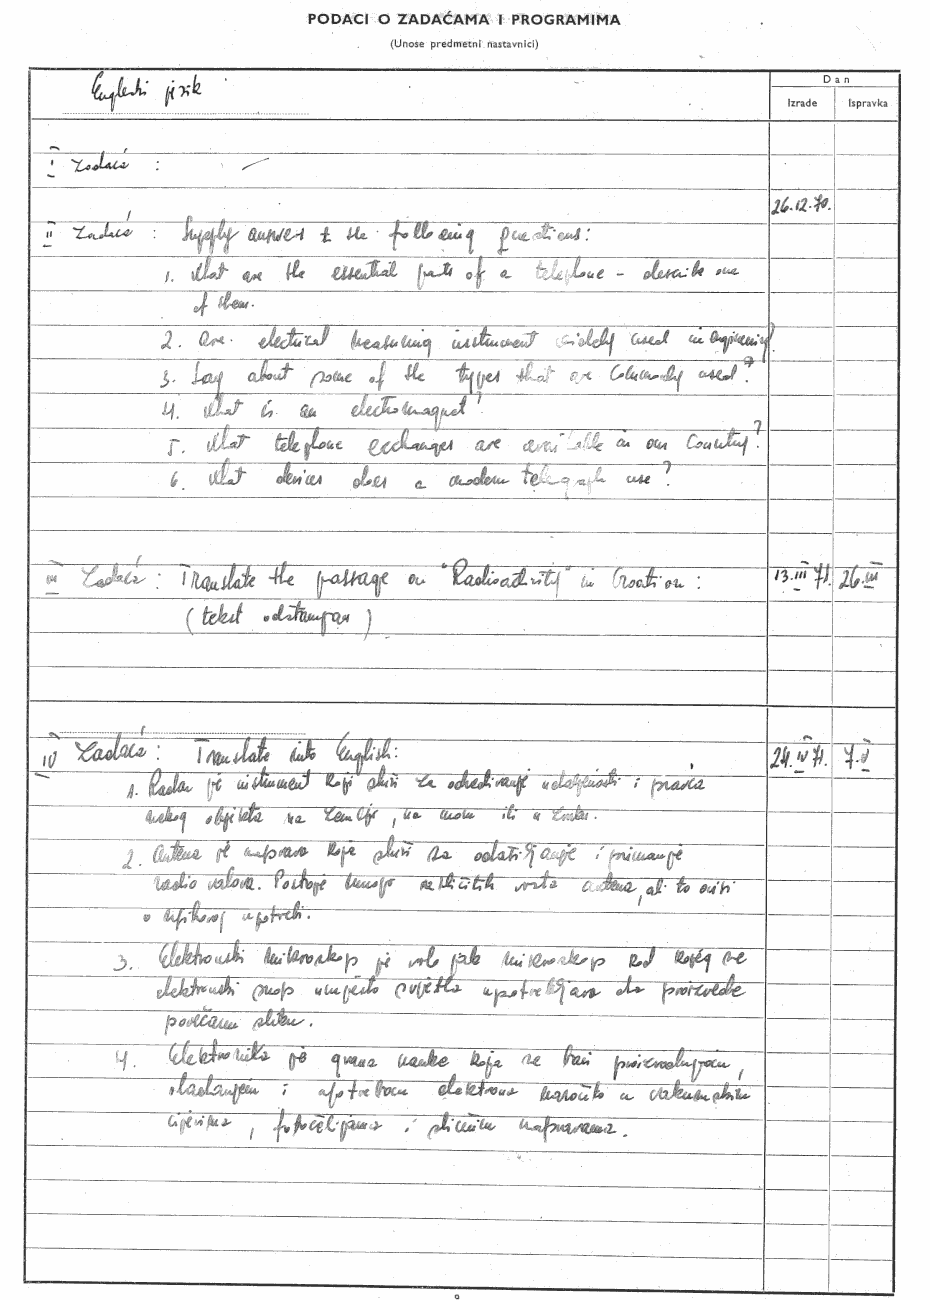 PODACI O ZADAĆAMA I PROGRAMIMA
(Unose predmetni nastavnici)
Dan
Izrade Ispravka
Engleski jezik
I Zadaća : —
26.12.70.
II Zadaća : Supply answers to the following questions:
1. What are the essential parts of a telephone – describe one
of them.
2. Are electrical measuring instrument widely used in engineering?
3. Say about some of the types that are commonly used?
4. What is an electromagnet?
5. What telephone exchanges are available in our Country?
6. What devices does a modern telegraph use?
III Zadaća : Translate the passage on "Radioactivity" in Croatian : 13.III 71. 26.III
(tekst odštampan)
IV Zadaća : Translate into English: 24.IV 71. 7.V
1. Radar je instrument koji služi za određivanje udaljenosti i pravca
nekog objekta na zemlji, na moru ili u zraku.
2. Antena je naprava koja služi za odašiljanje i primanje
radio valova. Postoje mnogo različitih vrsta antena, ali to ovisi
o njihovoj upotrebi.
3. Elektronski mikroskop je vrlo jak mikroskop kod kojeg se
elektronski snop umjesto svjetla upotrebljava da proizvede
povećanu sliku.
4. Elektronika je grana nauke koja se bavi proizvodnjom,
vladanjem i upotrebom elektrona naročito u vakumskim
cijevima, fotoćelijama i sličnim napravama.